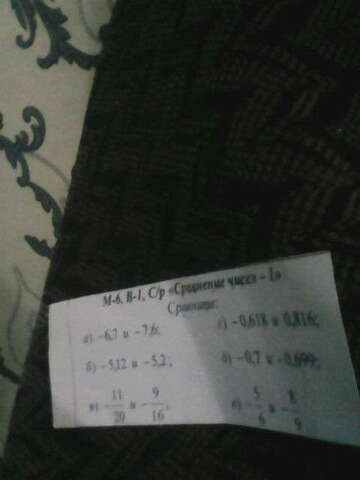 М-6, В-1, С/р «Сравнение чисел – 1»
Сравните:
а) –6,7 и –7,6;
г) –0,618 и 0,816;
б) –5,12 и –5,2;
д) –0,7 и –0,699;
в) –11/20 и –9/16;
е) –5/6 и –8/9